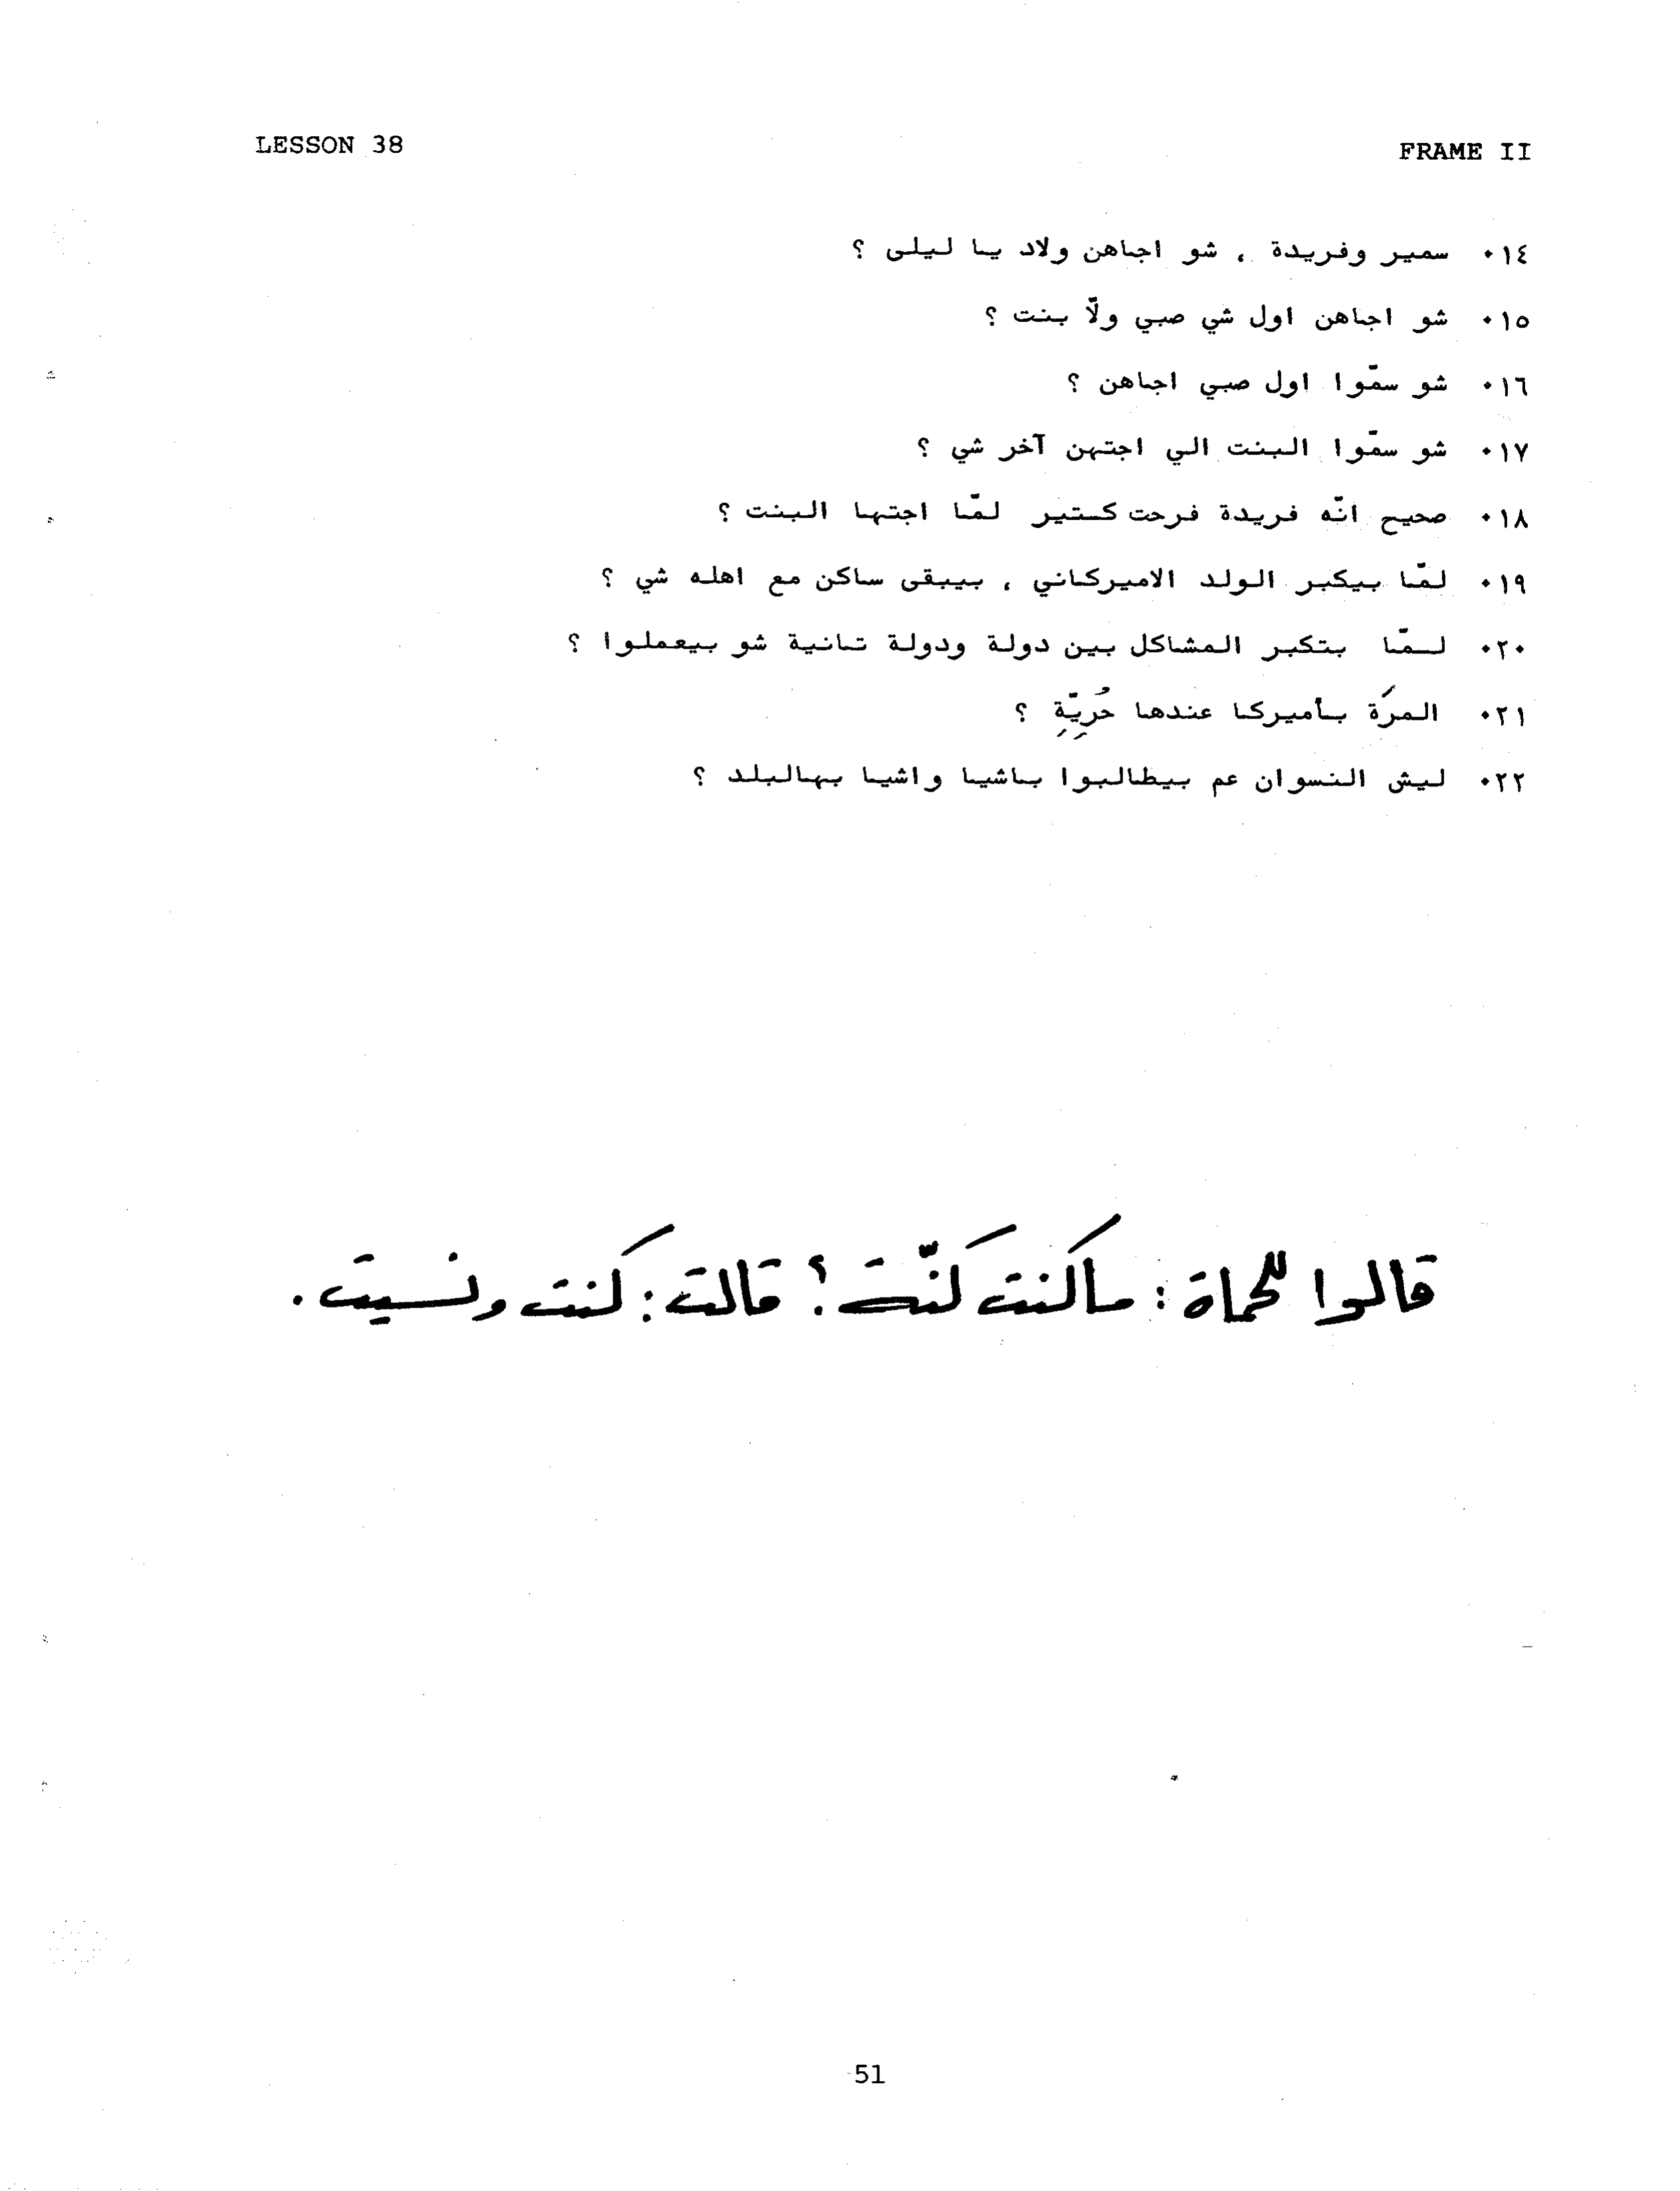 LESSON 38
FRAME II
١٤٠ سمير وفريدة ، شو اجاهن ولاد يا ليلى ؟
١٥٠ شو اجاهن اول شي صبي ولّا بنت ؟
١٦٠ شو سمّوا اول صبي اجاهن ؟
١٧٠ شو سمّوا البنت الي اجتهن آخر شي ؟
١٨٠ صحيح انّه فريدة فرحت كتير لمّا اجتها البنت ؟
١٩٠ لمّا بيكبر الولد الاميركاني ، بيبقى ساكن مع اهله شي ؟
٢٠٠ لمّا بتكبر المشاكل بين دولة ودولة تانية شو بيعملوا ؟
٢١٠ المرَة بأميركا عندها حُرِيِّة ؟
٢٢٠ ليش النسوان عم بيطالبوا باشيا واشيا بهالبلد ؟
قالوا للحماة : ما كنت كنّت ؟ قالت : كنت ونسيت .
51